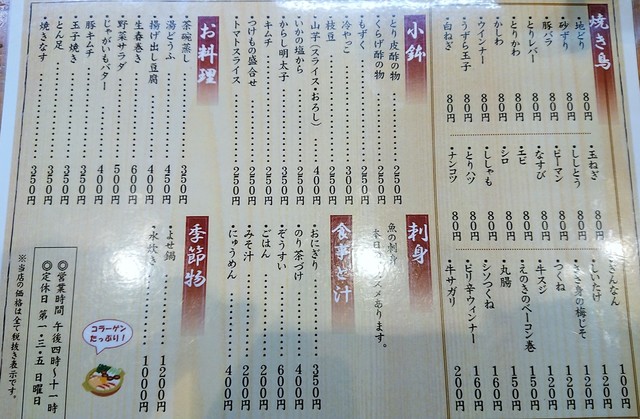 焼き鳥
・地どり 80円
・砂ずり 80円
・豚バラ 80円
・とりレバー 80円
・とりかわ 80円
・かしわ 80円
・ウインナー 80円
・うずら玉子 80円
・白ねぎ 80円
・玉ねぎ 80円
・ししとう 80円
・ピーマン 80円
・なすび 80円
・エビ 80円
・シロ 80円
・ししゃも 80円
・とりハツ 80円
・ナンコツ 80円
・ぎんなん 100円
・しいたけ 120円
・ささ身の梅じそ 120円
・つくね 120円
・牛スジ 120円
・えのきのベーコン巻 150円
・丸腸 150円
・シソつくね 160円
・ピリ辛ウィンナー 160円
・牛サガリ 200円
小鉢
・とり皮酢の物 250円
・くらげ酢の物 250円
・もずく 250円
・冷やっこ 300円
・枝豆 250円
・山芋(スライス・おろし) 400円
・いかの塩から 250円
・からし明太子 350円
・キムチ 250円
・つけもの盛合せ 250円
・トマトスライス 250円
刺身
魚の刺身
本日のオススメあります。
食事と汁
・おにぎり 350円
・のり茶づけ 400円
・ぞうすい 600円
・ごはん 200円
・みそ汁 200円
・にゅうめん 400円
お料理
・茶碗蒸し 350円
・湯どうふ 450円
・揚げ出し豆腐 400円
・生春巻き 600円
・野菜サラダ 500円
・じゃがいもバター 400円
・豚キムチ 350円
・玉子焼き 350円
・とん足 350円
・焼きなす 350円
季節物
・よせ鍋 1200円
・水炊き 1000円
コラーゲン
たっぷり!
◎営業時間 午後四時〜十一時
◎定休日 第一・三・五 日曜日
※当店の価格は全て税抜き表示です。